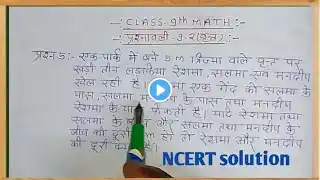 CLASS-9th MATH
प्रश्नावली-9.2 (वृत्त)
प्रश्न 5:- एक पार्क में बने 5 m त्रिज्या वाले वृत्त पर
खड़ी तीन लड़कियाँ रेशमा, सलमा एवं मनदीप
खेल रही हैं। एक गेंद को सलमा के
पास, सलमा के पास तथा मनदीप
रेशमा के फेंकती है। यदि रेशमा तथा
सलमा के और सलमा तथा मनदीप के
बीच की दूरी हो तो रेशमा और मनदीप
की दूरी है।
NCERT solution